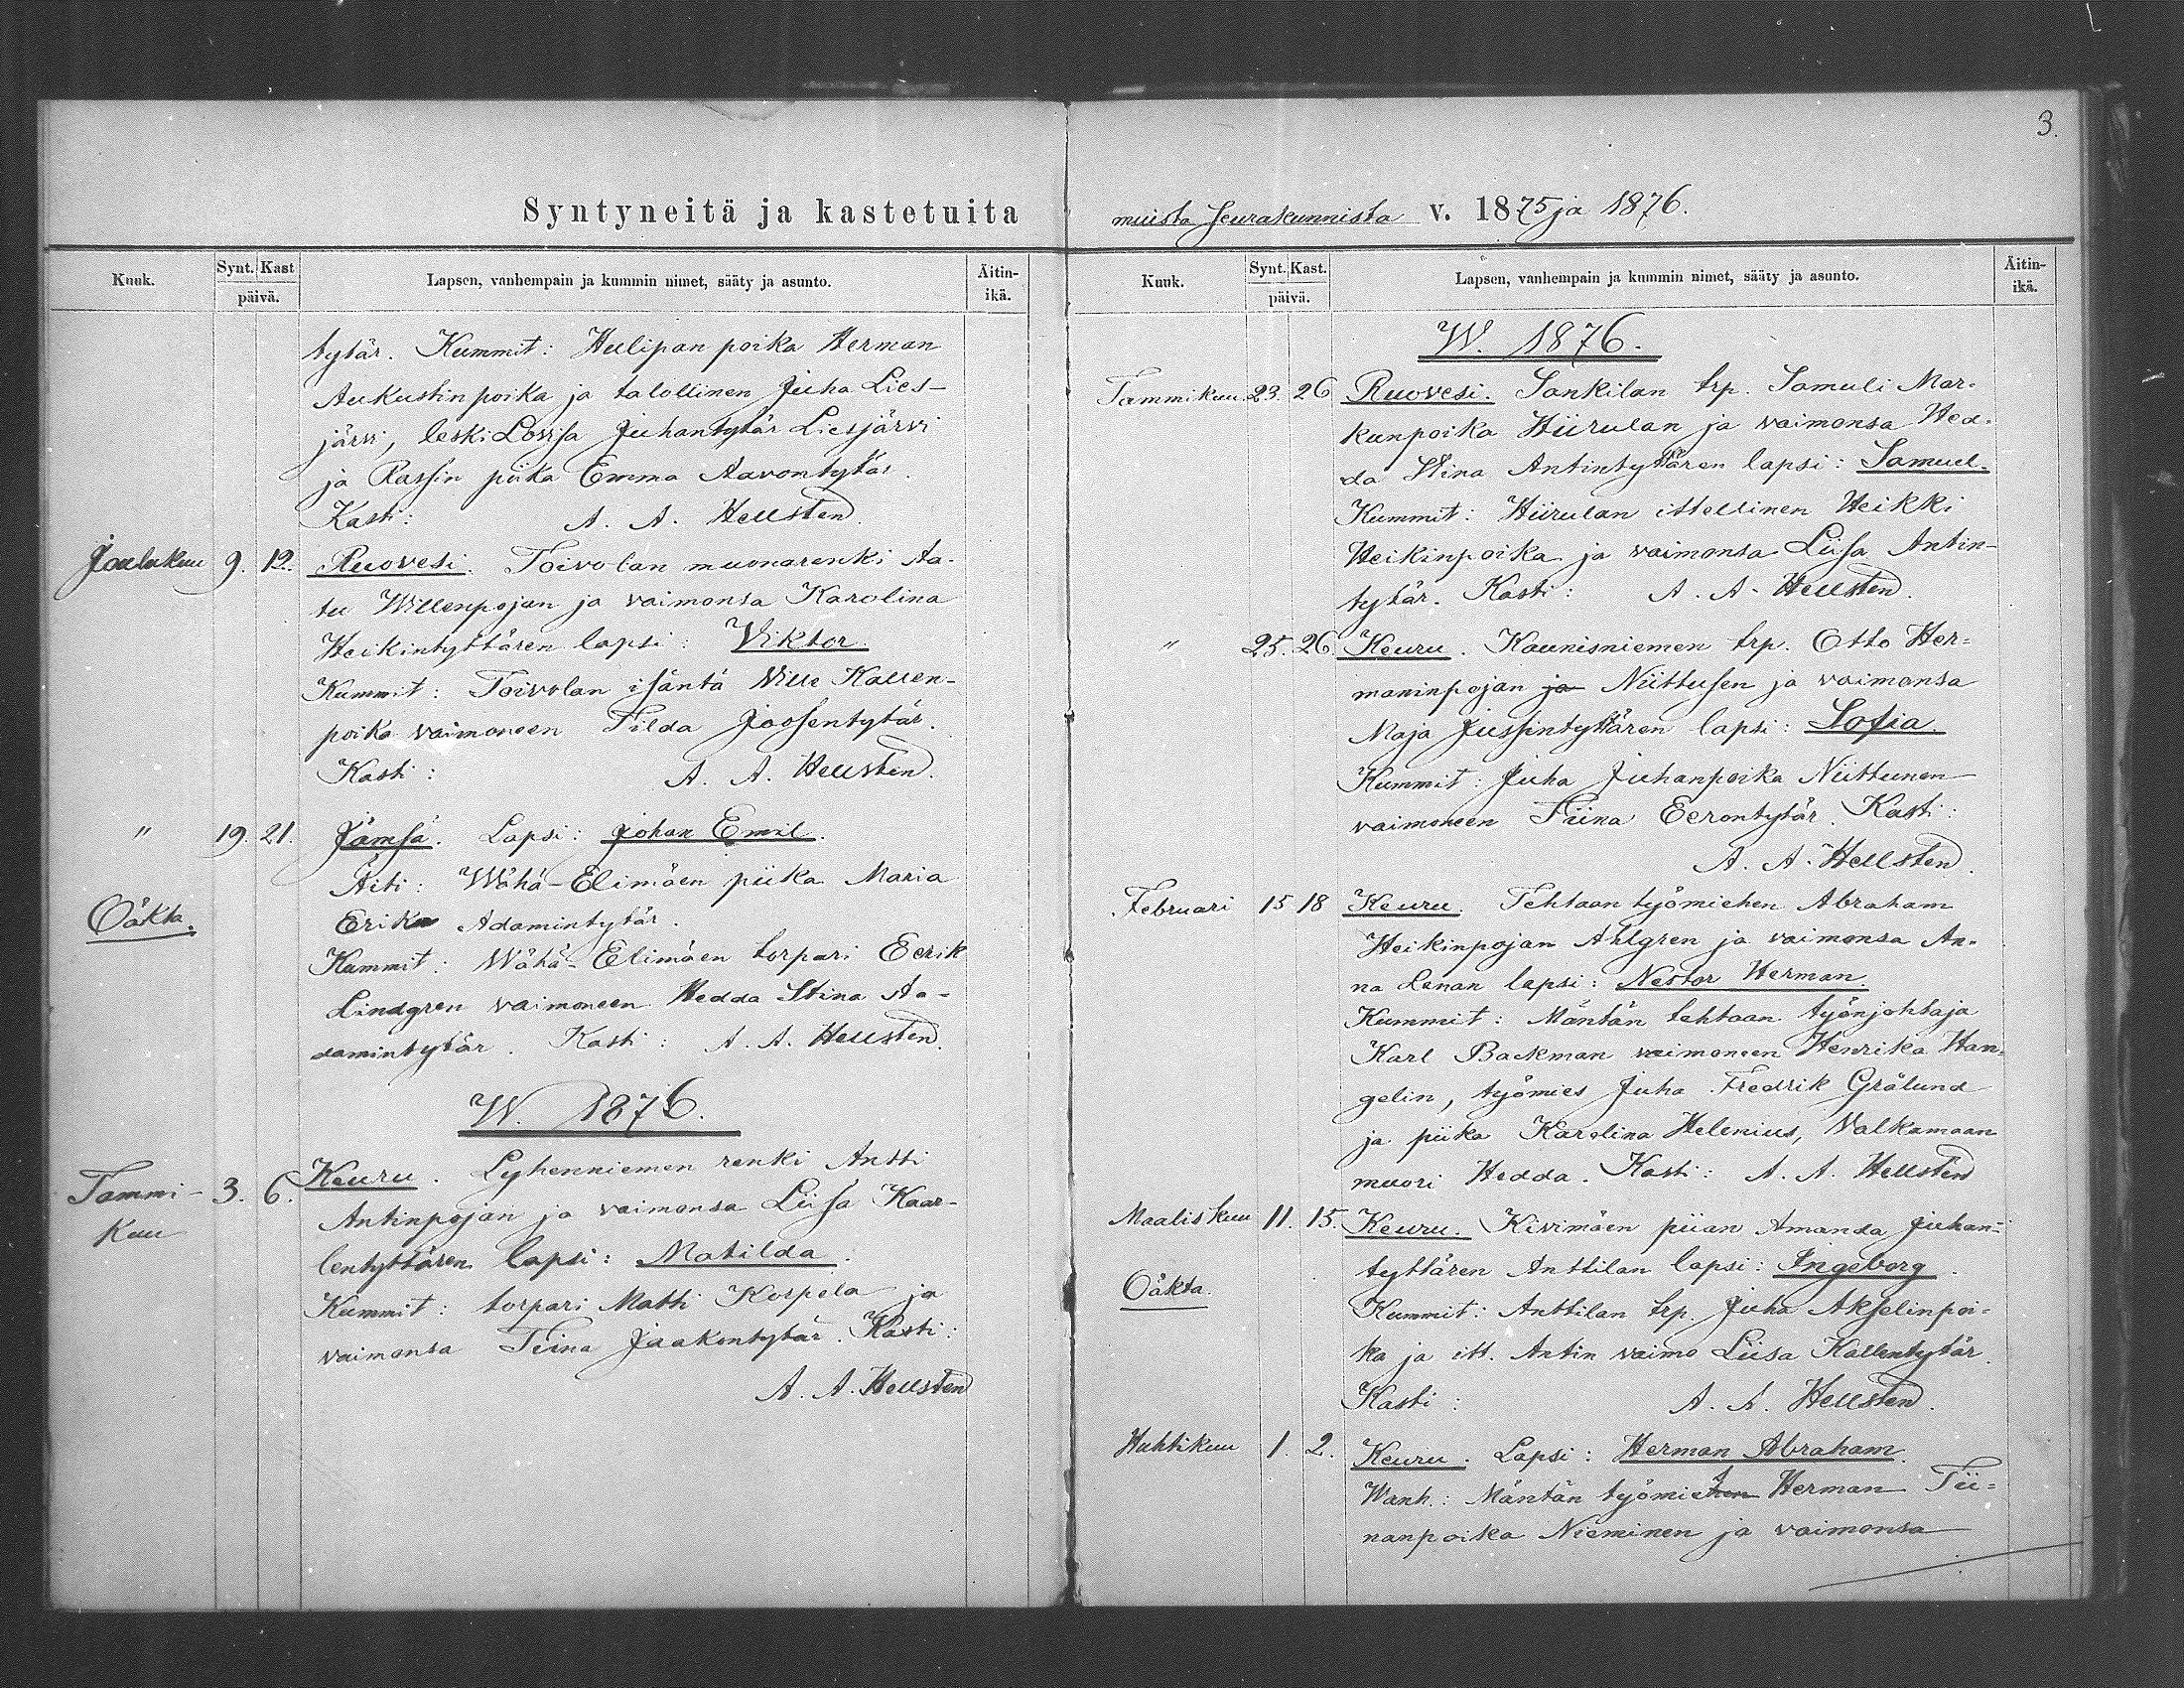 3.
Syntyneitä ja kastetuita
Kuuk. Synt. Kast päivä. Lapsen, vanhempain ja kummin nimet, sääty ja asunto. Äitin-ikä.
tytär. Kummit: Hulipan poika Herman
Aukustinpoika ja talollinen Juha Lies-
järvi, leski Lovisa Juhantytär Liesjärvi
ja Rassin piika Emma Aavontytär.
Kasti: A. A. Hellsten.
Joulukuu 9. 12. Ruovesi. Toivolan muonarenki Aa-
tu Willenpojan ja vaimonsa Karolina
Heikintyttären lapsi: Viktor.
Kummit: Toivolan isäntä Wille Kallen-
poika vaimoneen Tilda Joosentytär.
Kasti: A. A. Hellsten.
" 19. 21. Jämsä. Lapsi: Johan Emil.
Äiti: Wähä-Elimäen piika Maria
Oäkta. Erika Adamintytär.
Kummit: Wähä-Elimäen torpari Eerik
Lindgren vaimoneen Hedda Stina Aa-
damintytär. Kasti: A. A. Hellsten.
W. 1876.
Tammi- 3. 6. Keuru. Lyhenniemen renki Antti
kuu Antinpojan ja vaimonsa Liisa Kaar-
lentyttären lapsi: Matilda.
Kummit: torpari Matti Korpela ja
vaimonsa Tiina Jaakontytär. Kasti:
A. A. Hellsten
muista seurakunnista v. 1875 ja 1876.
Kuuk. Synt. Kast. päivä. Lapsen, vanhempain ja kummin nimet, sääty ja asunto. Äitin-ikä.
W. 1876.
Tammikuu. 23. 26 Ruovesi. Sankilan trp. Samuli Mar-
kunpoika Hiirulan ja vaimonsa Hed-
da Stina Antintyttären lapsi: Samuel.
Kummit: Hiirulan ittellinen Heikki
Heikinpoika ja vaimonsa Liisa Antin-
tytär. Kasti: A. A. Hellsten.
" 25. 26. Keuru. Kaunisniemen trp. Otto Her-
maninpojan ja Niittusen ja vaimonsa
Maja Jussintyttären lapsi: Sofia.
Kummit: Juha Juhanpoika Niittunen
vaimoneen Tiina Eerontytär. Kasti:
A. A. Hellsten.
Februari 15 18 Keuru. Tehtaan työmiehen Abraham
Heikinpojan Ahlgren ja vaimonsa An-
na Lenan lapsi: Nestor Herman.
Kummit: Mäntän tehtaan työnjohtaja
Karl Backman vaimoneen Henrika Han-
gelin, työmies Juha Fredrik Grålund
ja piika Karolina Helenius, Valkamaan
muori Hedda. Kasti: A. A. Hellsten
Maaliskuu 11. 15. Keuru. Kivimäen piian Amanda Juhan-
tyttären Anttilan lapsi: Ingeborg.
Oäkta. Kummit: Anttilan trp. Juha Akselinpoi-
ka ja itt. Antin vaimo Liisa Kallentytär.
Kasti: A. A. Hellsten.
Huhtikuu 1. 2. Keuru. Lapsi: Herman Abraham.
Wanh.: Mäntän työmiehen Herman Tii-
nanpoika Nieminen ja vaimonsa